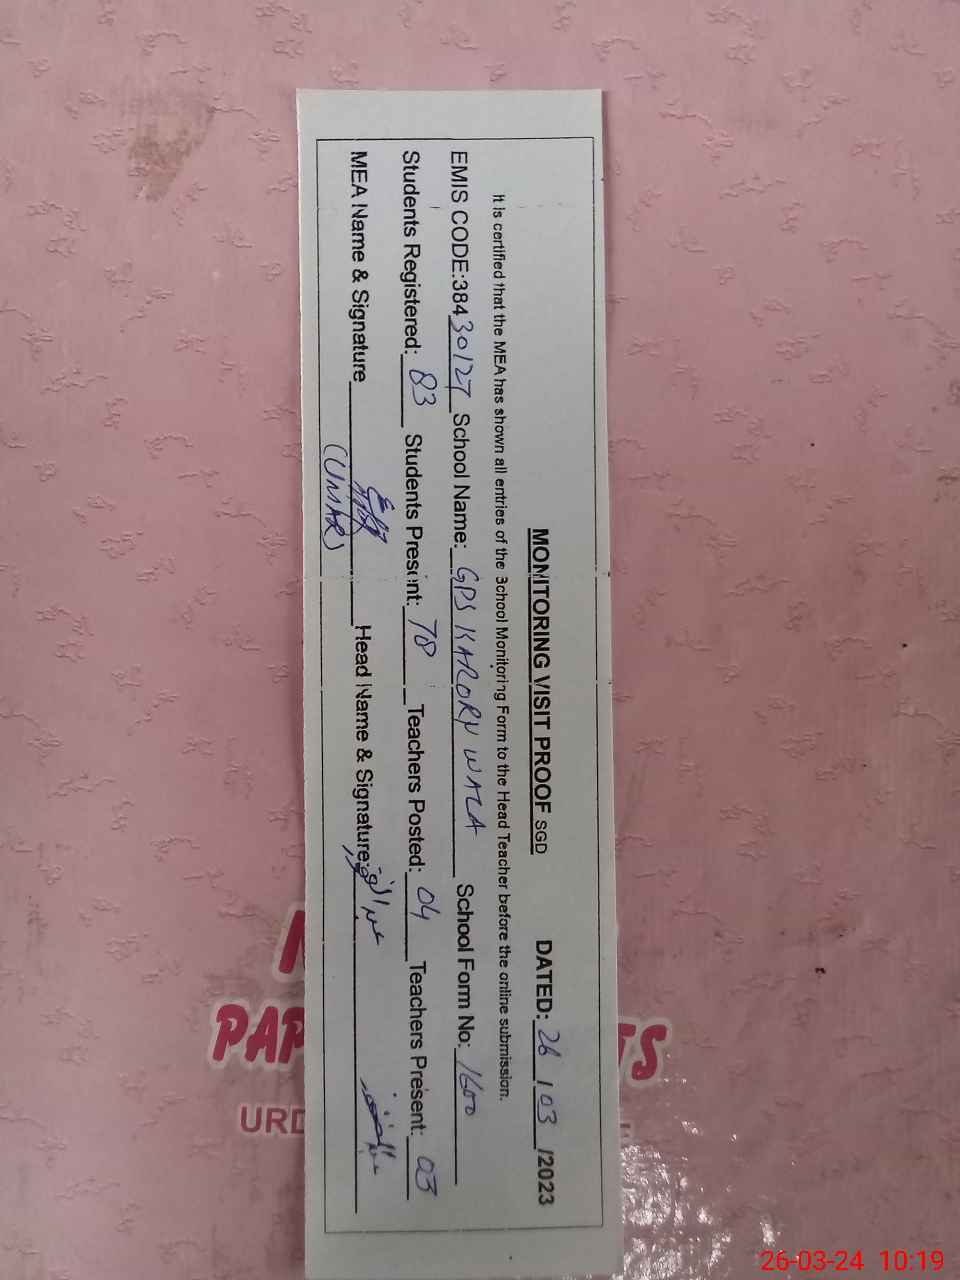 MONITORING VISIT PROOF SGD DATED: 26 / 03 /2023
It is certified that the MEA has shown all entries of the School Monitoring Form to the Head Teacher before the online submission.
EMIS CODE:38430127 School Name: GPS KARORY WALA School Form No: 1600
Students Registered: 83 Students Present: 78 Teachers Posted: 04 Teachers Present: 03
MEA Name & Signature Head Name & Signature:
(UMAR)
PAP
URD
26-03-24 10:19